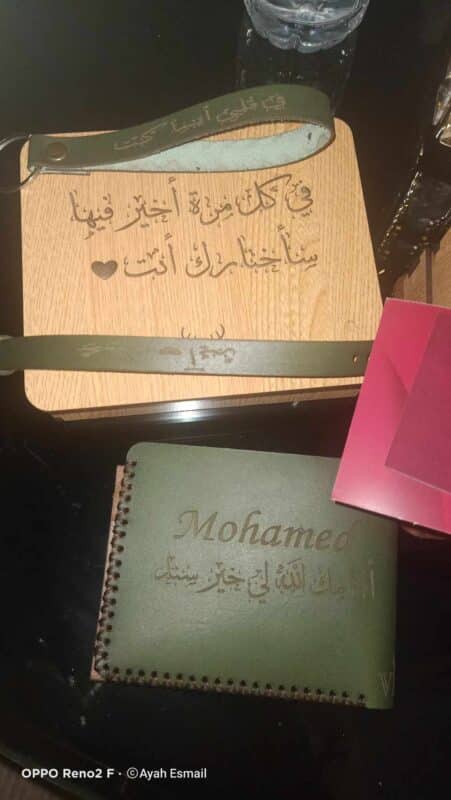 في قلبي أنت
في كل مرة أخير فيها
سأختارك أنت
Mohamed
أدامك الله لي خير سند
OPPO Reno2 F · ⓒAyah Esmail